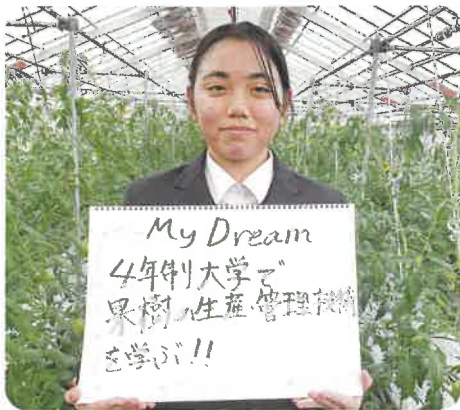 My Dream
4年制大学で
果樹の生産・管理技術
を学ぶ!!